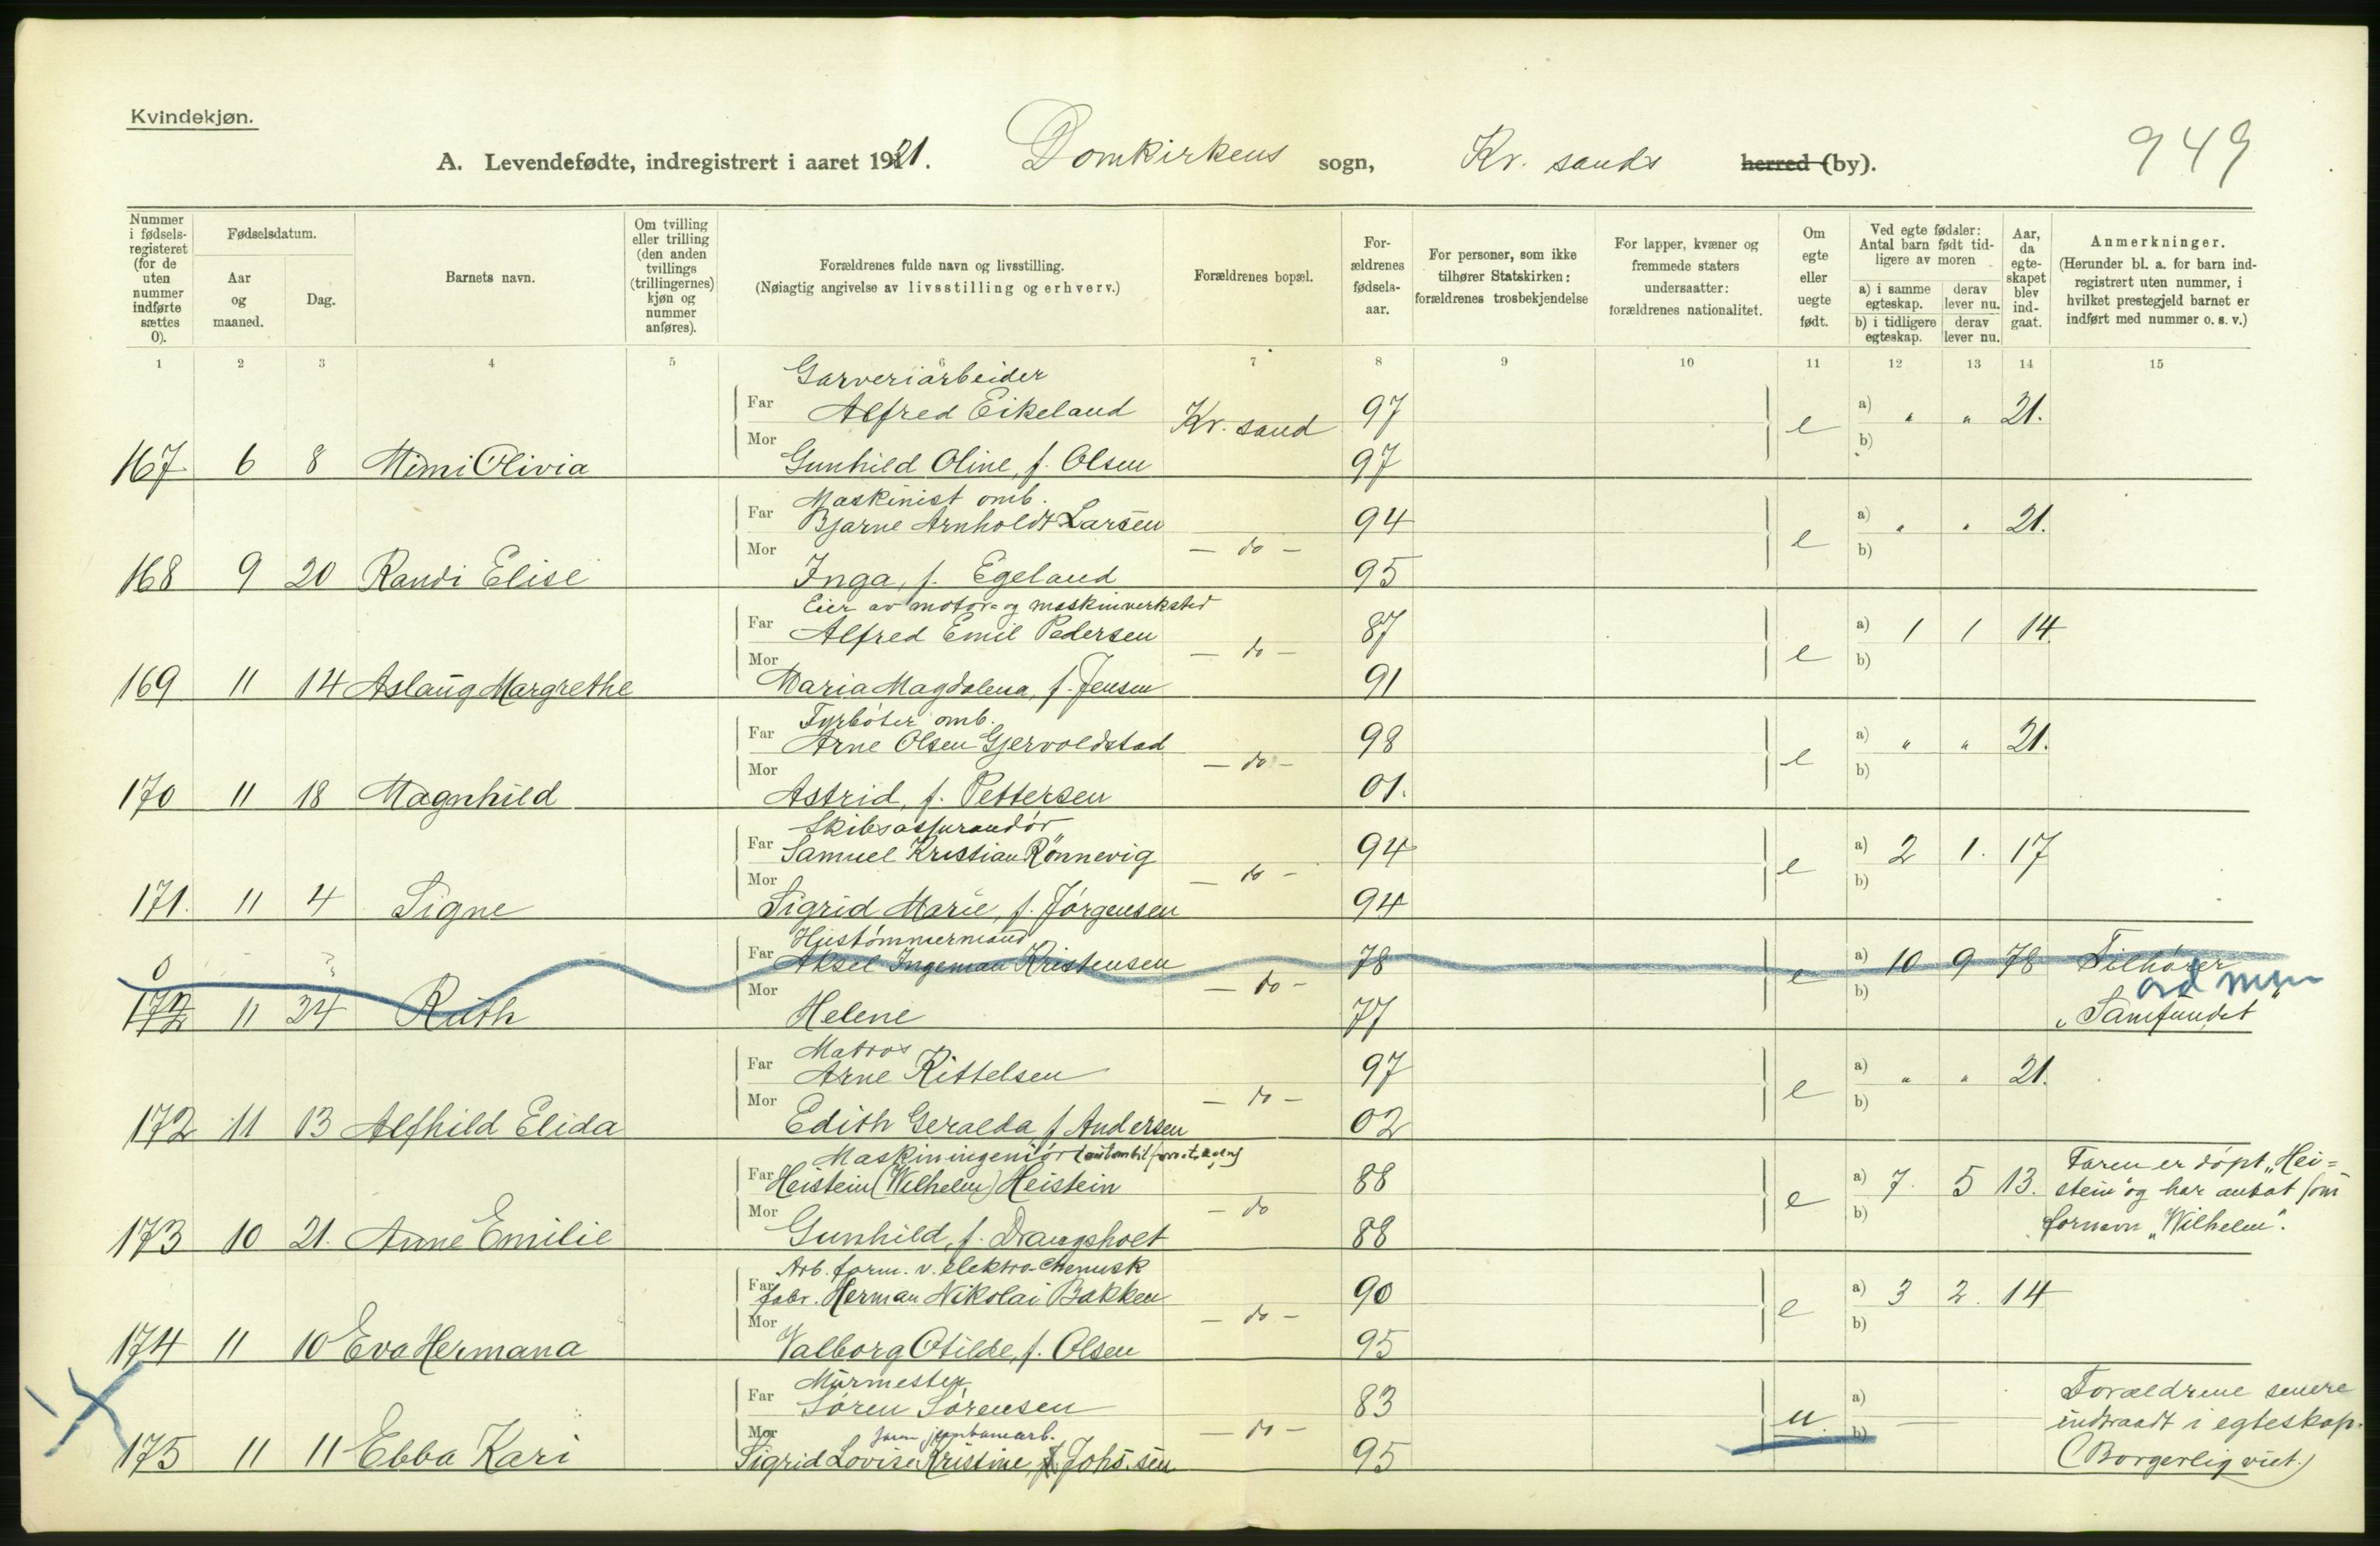 Kvindekjøn.
A. Levendefødte, indregistrert i aaret 1921. Domkirkens sogn, Kr. sands herred (by). 949
Nummer i fødselsregisteret (for de uten nummer indførte sættes 0).
Fødselsdatum.
Aar og maaned.
Dag.
Barnets navn.
Om tvilling eller trilling (den anden tvillings (trillingernes) kjøn og nummer anføres).
Forældrenes fulde navn og livsstilling.
(Nøiagtig angivelse av livsstilling og erhverv.)
Forældrenes bopæl.
For-ældrenes fødsels-aar.
For personer, som ikke tilhører Statskirken: forældrenes trosbekjendelse
For lapper, kvæner og fremmede staters undersaatter: forældrenes nationalitet.
Om egte eller uegte født.
Ved egte fødsler: Antal barn født tid-ligere av moren
a) i samme egteskap. derav lever nu.
b) i tidligere egteskap. derav lever nu.
Aar, da egte-skapet blev ind-gaat.
Anmerkninger.
(Herunder bl. a. for barn ind-registrert uten nummer, i hvilket prestegjeld barnet er indført med nummer o. s. v.)
1 2 3 4 5 6 7 8 9 10 11 12 13 14 15
Garveriarbeider
Far Alfred Eikeland Kr. sand 97 e a) " " 21.
Mor b)
167 6 8 Mimi Olivia Gunhild Oline, f. Olsen 97
Maskinist omb.
Far Bjarne Arnholdt Larsen 94 a) " " 21.
Mor — do — e b)
168 9 20 Randi Elise Inga, f. Egeland 95
Eier av motor- og maskinverksted
Far Alfred Emil Pedersen 87 a) 1 1 14
Mor — do — e b)
169 11 14 Aslaug Margrethe Maria Magdalena, f. Jensen 91
Fyrböter omb.
Far Arne Olsen Gjervoldstad 98 a) " " 21.
Mor — do — e b)
170 11 18 Magnhild Astrid, f. Pettersen 01.
Skibsassurandör
Far Samuel Kristian Rönnevig 94 a) 2 1. 17
Mor — do — e b)
171. 11 4 Signe Sigrid Marie, f. Jörgensen 94
Hustömmermand
0 Far Aksel Ingeman Kristensen 78 e a) 10 9 78 Tilhörer
Mor — do — b)
172 11 24 Ruth Helene 77 „Samfundet"
Matros
Far Arne Kittelsen 97 a) " " 21.
Mor — do — e b)
172 11 13 Alfhild Elida Edith Geralda f. Andersen 02
Maskiningeniör
Far Heistein (Wilhelm) Heistein 88 a) 7. 5 13. Faren er döpt „Hei=
stein" og har antat som
Mor — do e b)
173 10 21. Anne Emilie Gunhild, f. Drangsholt 88 fornavn „Wilhelm".
Arb. form. v. elektro-Chemisk
Far fabr. Herman Nikolai Bakken 90 a) 3 2. 14
Mor — do — e b)
174 11 10 Eva Hermana Valborg Otilde, f. Olsen 95
Murmester
Far Sören Sörensen 83 a) — Forældrene senere
indtraadt i egteskap.
Mor — do — u. b)
175 11 11 Ebba Kari Sigrid Lovise Kristine Johs.sen 95 (Borgerlig viet.)